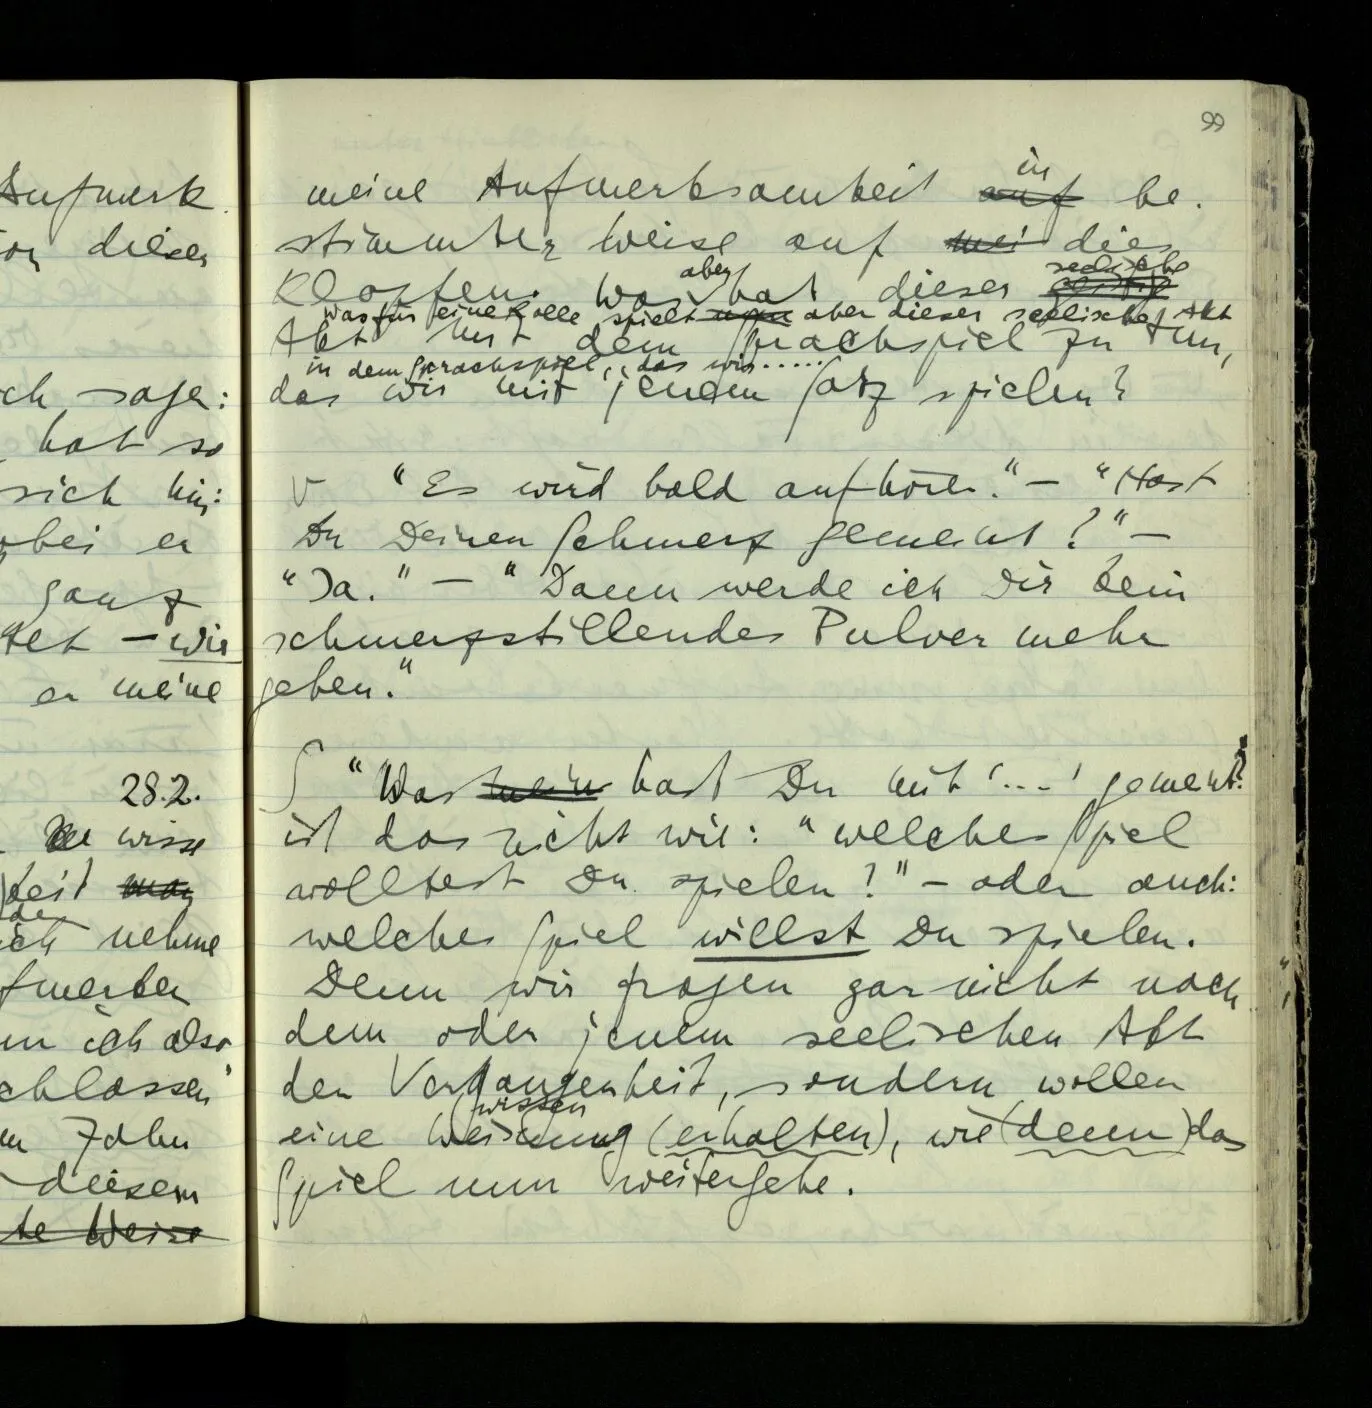 Aufmerk
dieser
ich sage:
hat so
sich hin:
wobei er
ganz
tet – wir
er meine
28.2.
wisse
keit man
der
ich nehme
fmerken
nn ich also
chlossen"
Zahn
diesem
te Weise
99
in
meine Aufmerksamkeit auf be-
stimmter Weise auf mei die
aber seelische
Klopfen. Was hat dieser geistige
Was für eine Rolle spielt nun aber dieser seelische Akt
Akt mit dem Sprachspiel zu tun,
in dem Sprachspiel, das wir.....
das wir mit jenem Satz spielen?
∨ "Es wird bald aufhören." – "Hast
Du Deinen Schmerz gemeint?" –
"Ja." – "Dann werde ich Dir kein
schmerzstillendes Pulver mehr
geben."
∫ "Was mein hast Du mit '...' gemeint?"
ist das nicht wie: "welches Spiel
wolltest Du spielen?" – oder auch:
welches Spiel willst Du spielen.
Denn wir fragen gar nicht nach
dem oder jenem seelischen Akt
der Vergangenheit, sondern wollen
(wissen
eine Weisung (erhalten), wie (denn) das
Spiel nun weitergehe.